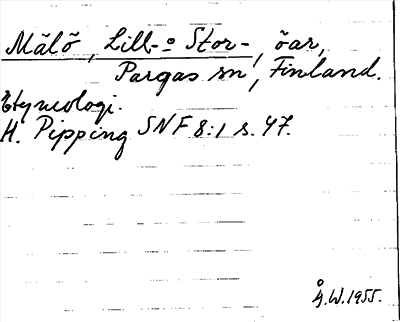 Målö, Lill- o Stor-, öar,
Pargas sn, Finland.
Etymologi.
H. Pipping SNF 8:1 s. 47.
Å.W. 1955.